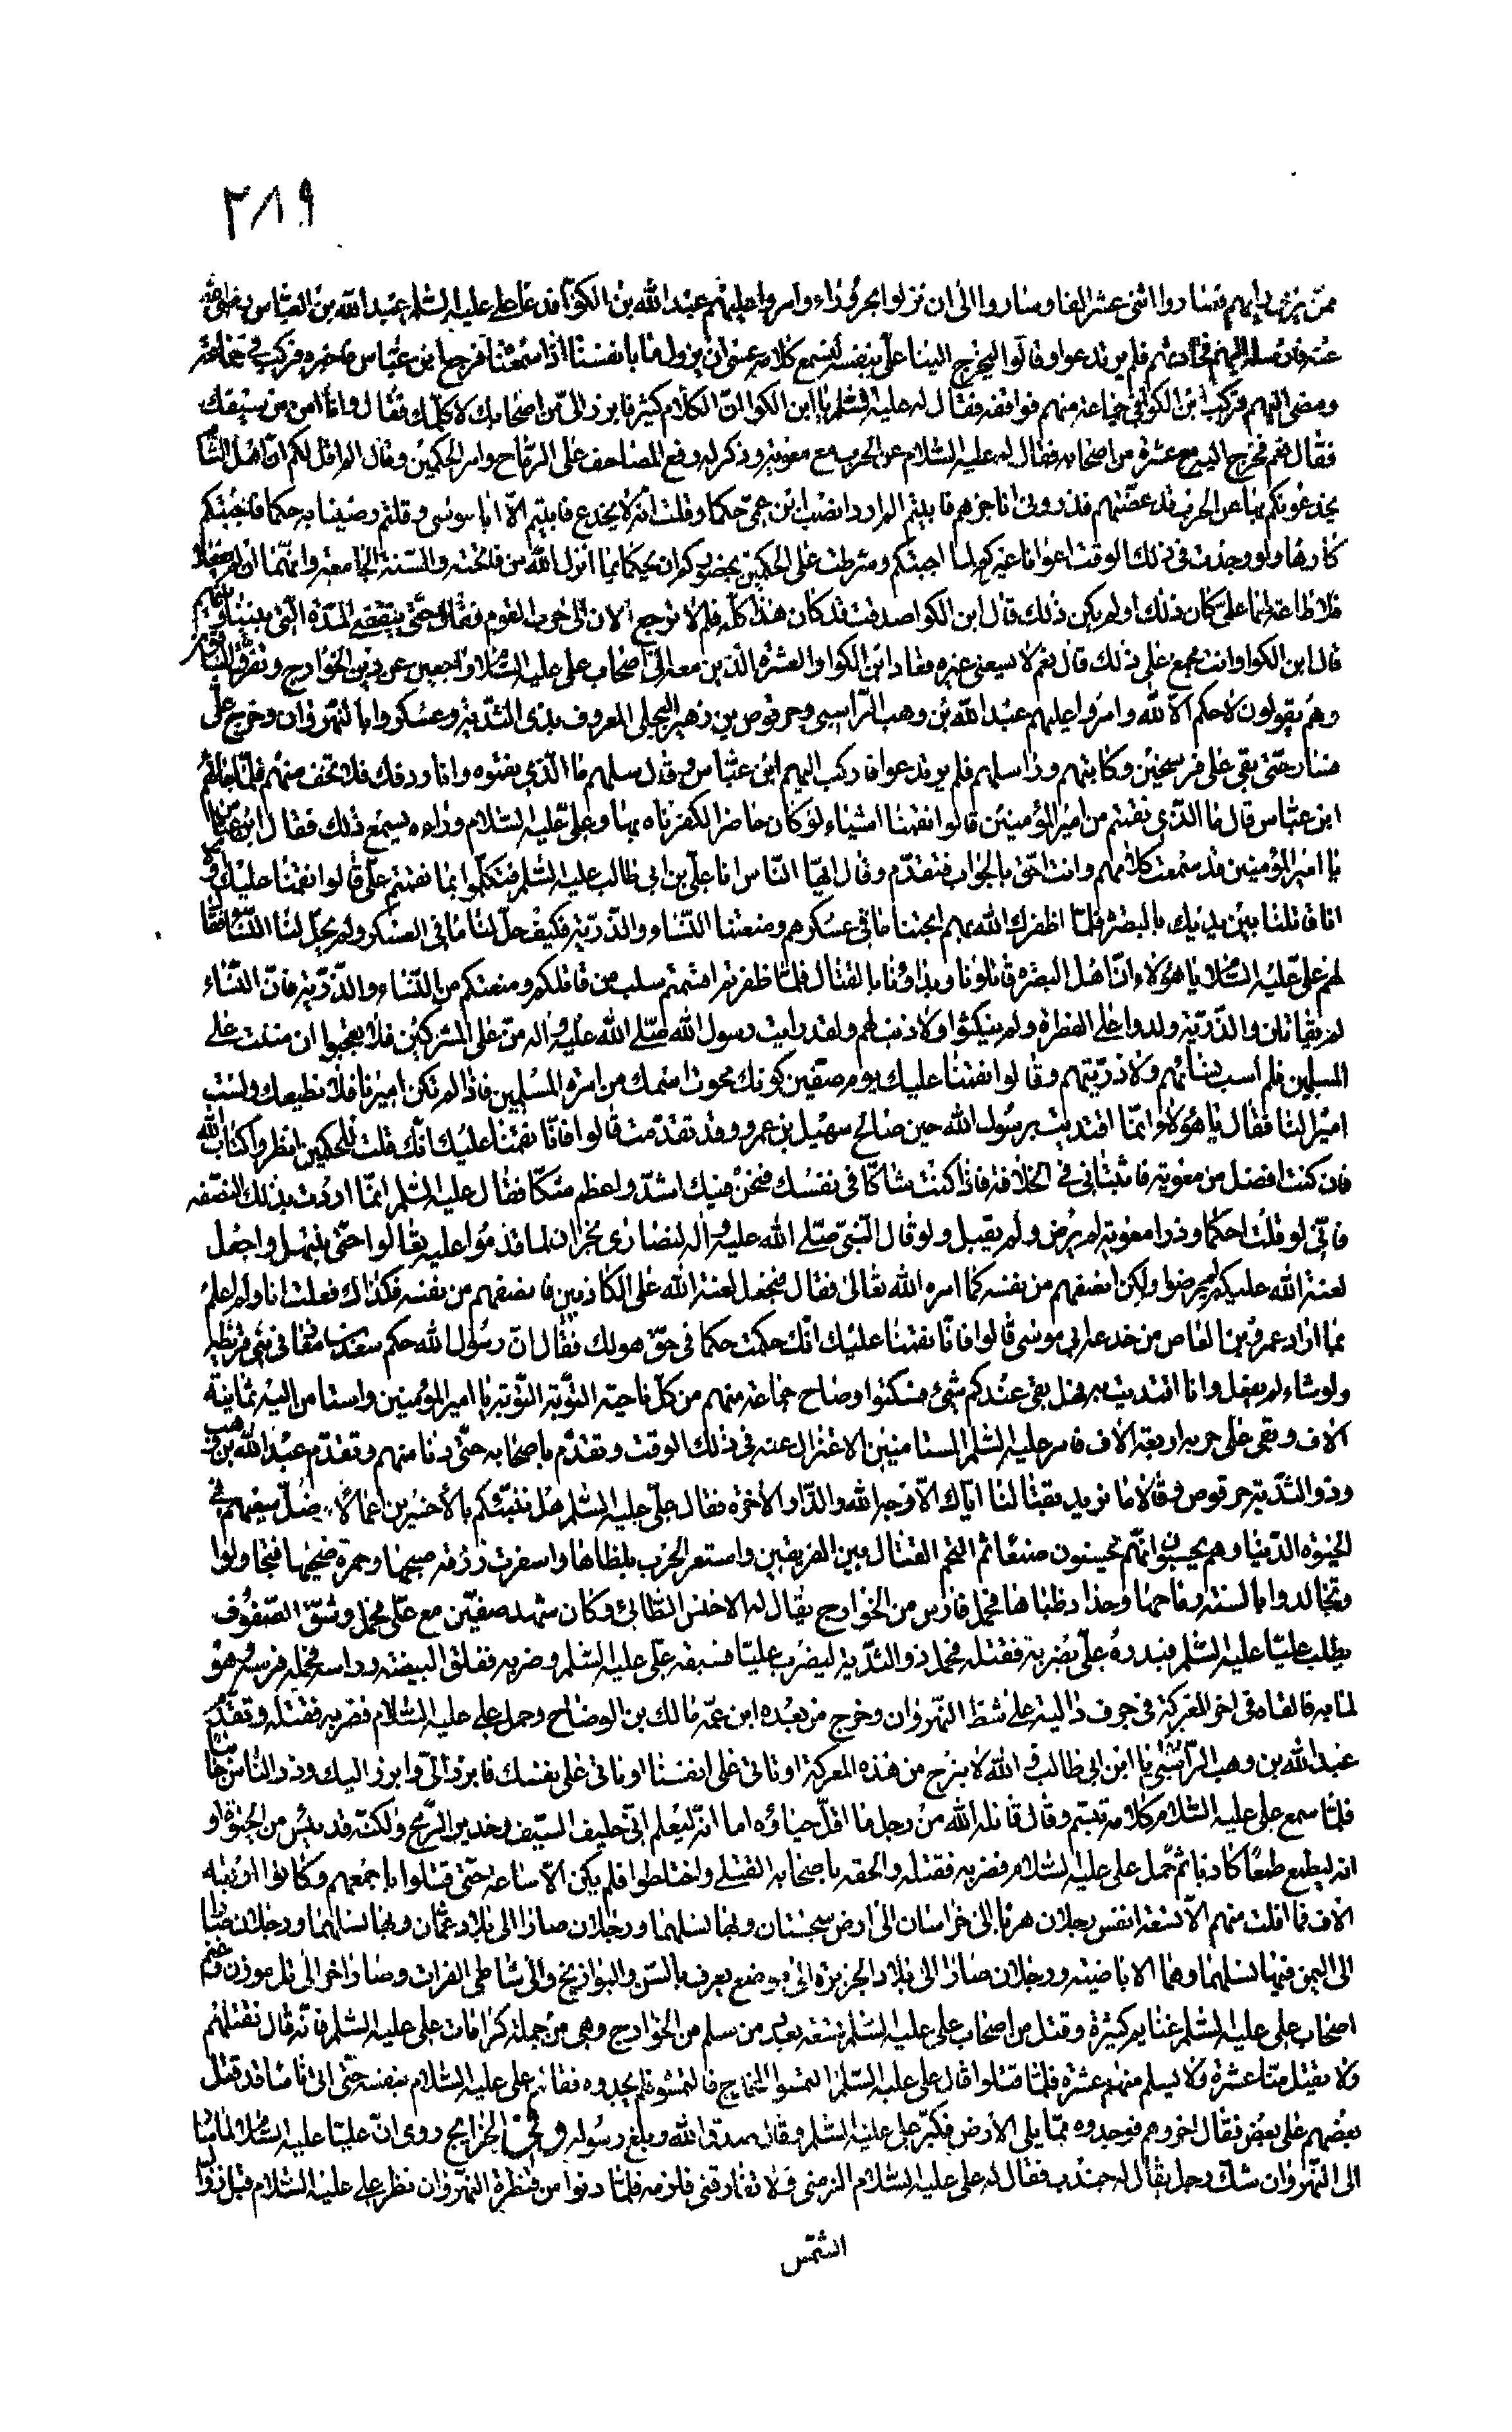 ٣٨٩
فساروا اثنى عشر الفا وساروا الى ان نزلوا بحروراء وامروا عليهم عبد الله بن الكوا فدعا على عليه السلم عبد الله بن العباس رضى الله
عنه فارسله اليهم فلم يرتدعوا وقالوا ليخرج الينا علىّ بنفسه لنسمع كلامه عسى ان يزول ما بانفسنا اذا سمعناه فرجع ابن عباس فاخبره فركب فى جماعة
ومضى اليهم فركب ابن الكوا فى جماعة منهم فواقفه فقال له عليه السلم يا ابن الكوا انّ الكلام كثير فابرز الىّ من اصحابك لاكلّمك فقال وانا امن من سيفك
فقال نعم فخرج اليه مع عشرة من اصحابه فقال له عليه السلام عن الحرب مع معوية وذكر له رفع المصاحف على الرماح وامر الحكمين وقال الم اقل لكم انّ اهل الشام
يخدعونكم بها عن الحرب قد عضّتهم فذرونى اناجزهم فابيتم الم ارد انصب ابن عمى حكما وقلت انه لا يخدع فابيتم الّا ابا موسى وقلتم رضينا به حكما فاجبتكم
كارها ولو وجدت فى ذلك الوقت اعوانا غيركم لما اجبتكم وشرطت على الحكمين بحضوركم ان يحكما بما انزل الله من فاتحته والسنة الجامعة وانهما ان لم يفعلا
فلا طاعة لهما علىّ كان ذلك او لم يكن ذلك قال ابن الكوا صدقت قد كان هذا كله فلم لا ترجع الان الى حرب القوم فقال حتى ينقضى المدة التى بيننا وبينهم
قال ابن الكوا وانت مجمع على ذلك قال نعم لا يسعنى غيره فعاد ابن الكوا والعشرة الذين معه الى اصحاب على عليه السلام راجعين عن دين الخوارج وتفرق الباقون
وهم يقولون لا حكم الا لله وامروا عليهم عبد الله بن وهب الراسبى وحرقوص بن زهير البجلى المعروف بذى الثدية وعسكروا بالنهروان وخرج علىّ
فسار حتى بقى على فرسخين وكاتبهم وراسلهم فلم يرتدعوا فاركب اليهم ابن عباس وقال سلهم ما الذى نقموه وانا وردفك فلا تخف منهم فلما جائهم
ابن عباس قال ما الذى نقمتم من امير المؤمنين قالوا نقمنا اشياء لو كان حاضرا لكفرناه بها وعلىّ عليه السلام وراءه يسمع ذلك فقال ابن عباس
يا امير المؤمنين قد سمعت كلامهم وانت احقّ بالجواب فتقدّم وقال ايها الناس انا علىّ بن ابى طالب عليه السلم فتكلّموا بما نقمتم علىّ قالوا نقمنا عليك
انا قاتلنا بين يديك بالبصرة فلمّا اظفرك الله بهم ابحتنا ما فى عسكرهم ومنعتنا النساء والذّرّية فكيف حلّ لنا ما فى العسكر ولم يحلّ لنا النساء فقال
لهم علىّ عليه السلام يا هؤلاء انّ اهل البصره قاتلونا وبداؤنا بالقتال فلمّا ظفرتم اقتسمتم سلب من قاتلكم ومنعتكم من النّساء والذّرّية فانّ النّساء
لم يقاتلن والذّرّية ولدوا على الفطرة ولم ينكثوا ولا ذنب لهم ولقد رايت رسول الله صلّى الله عليه واله منّ على المشركين فلا تعجبوا ان مننت على
المسلمين فلم اسب نسائهم ولا ذرّيتهم وقالوا نقمنا عليك يوم صفّين كونك محوت اسمك من امرة المسلمين فاذا لم تكن اميرنا فلا نطيعك ولست
اميرا لنا فقال يا هؤلاء انمّا اقتديت برسول الله حين صالح سهيل بن عمرو وقد تقدّمت قالوا فانّا نقمنا عليك انّك قلت للحكمين انظرا كتاب الله
فان كنت افضل من معوية فاثبتانى فى الخلافة فاذا كنت شاكّا فى نفسك فنحن فيك اشدّ واعظم شكّا فقال عليه السلم انمّا اردت بذلك النصفه
فانّى لو قلت احكما وذرا معوية لم يرض ولم يقبل ولو قال النّبىّ صلّى الله عليه واله لنصارى نجران لما قدموا عليه تعالوا حتّى نبتهل واجعل
لعنة الله عليكم لم يرضوا ولكن انصفهم من نفسه كما امره الله تعالى فقال فنجعل لعنة الله على الكاذبين فانصفهم من نفسه فكذلك فعلت انا ولم اعلم
بما اراد عمرو بن العاص من خدعة ابى موسى قالوا فانّا نقمنا عليك انّك حكمت حكما فى حقّ هو لك فقال انّ رسول الله حكم سعد بن معاذ فى بنى قريظه
ولو شاء لم يفعل وانا اقتديت به فهل بقى عندكم شىء فسكتوا وصاح جماعة منهم من كلّ ناحية التّوبة التّوبة يا امير المؤمنين واستامن اليه ثمانية
الاف وبقى على حربه اربعة الاف فامر عليه السلم المستامنين الاعتزال عنه فى ذلك الوقت وتقدّم باصحابه حتّى دنا منهم وتقدّم عبد الله بن وهب
وذو الثدية حرقوص وقالا ما نريد بقتالنا ايّاك الا وجه الله والدّار الاخرة فقال علىّ عليه السلم هل ننبّئكم بالاخسرين اعمالا الّذين ضلّ سعيهم فى
الحيوة الدّنيا وهم يحسبون انّهم يحسنون صنعا ثم التحم القتال بين الفريقين واستعر الحرب بلظاها واسفرت زرقة صبحها وحمرة ضحيها فتجاولوا
وتجالدوا بالسنة رماحها وحداد ظباها فحمل فارس من الخوارج يقال له الاخنس الطائى وكان شهد صفّين مع علىّ فحمل وشقّ الصّفوف
يطلب عليّا عليه السلم فبدره علىّ بضربة فقتله فحمل ذو الثدية ليضرب عليّا فسبقه علىّ عليه السلم وضربه ففلق البيضة وراسه فحمله فرسه وهو
لما به فالقاه فى اخر المعركة فى جرف دالية على شطّ النّهروان وخرج من بعده ابن عمّه مالك بن الوضاح وحمل على علىّ عليه السلام فضربه فقتله وتقدّم
عبد الله بن وهب الراسبى يا ابن ابى طالب والله لا نبرح من هذه المعركة او تاتى على انفسنا او ناتى على نفسك فابرز الىّ وابرز اليك وذر الناس جانبا
فلمّا سمع على عليه السلام كلامه تبسّم وقال قاتله الله من رجل ما اقلّ حياؤه اما انّه ليعلم انّى حليف السّيف وخدين الرّمح ولكنّه قد يئس من الحيوة او
انه ليطمع طمعًا كاذبا ثمّ حمل على علىّ عليه السلام فضربه فقتله والحقه باصحابه القتلى واختلطوا فلم يكن الّا ساعة حتّى قتلوا باجمعهم وكانوا اربعه
الاف فما افلت منهم الّا تسعة انفس رجلان هربا الى خراسان الى ارض سجستان وبها نسلهما ورجلان صارا الى بلاد عمّان وبها نسلهما ورجلان صارا
الى اليمن فيها نسلهما وهما الاباضية ورجلان صارا الى بلاد الجزيرة الى موضع يعرف بالسّن والبوازيج والى شاطى الفرات وصار اخر الى تل موزن وغنم
اصحاب على عليه السلم غنايم كثيرة وقتل من اصحاب على عليه السلم تسعة بعدد من سلم من الخوارج وهى من جملة كرامات على عليه السلم فانّه قال نقتلهم
ولا يقتل منّا عشرة ولا يسلم منهم عشرة فلمّا قتلوا قال على عليه السلم التمسوا المخدج فالتمسوه فلم يجدوه فقام على عليه السلام بنفسه حتّى اتى ناسا قد قتل
بعضهم على بعض فقال اخروهم فوجدوه ممّا يلى الارض فكبّر على عليه السلم وقال صدق الله وبلغ رسوله وفى الخرايج روى انّ عليّا عليه السلام لما سار
الى النّهروان شكّ رجل يقال له جندب فقال له على عليه السلام الزمنى ولا تفارقنى فلزمه فلمّا دنوا من قنطرة النّهروان نظر على عليه السلام قبل زوال
الشمس